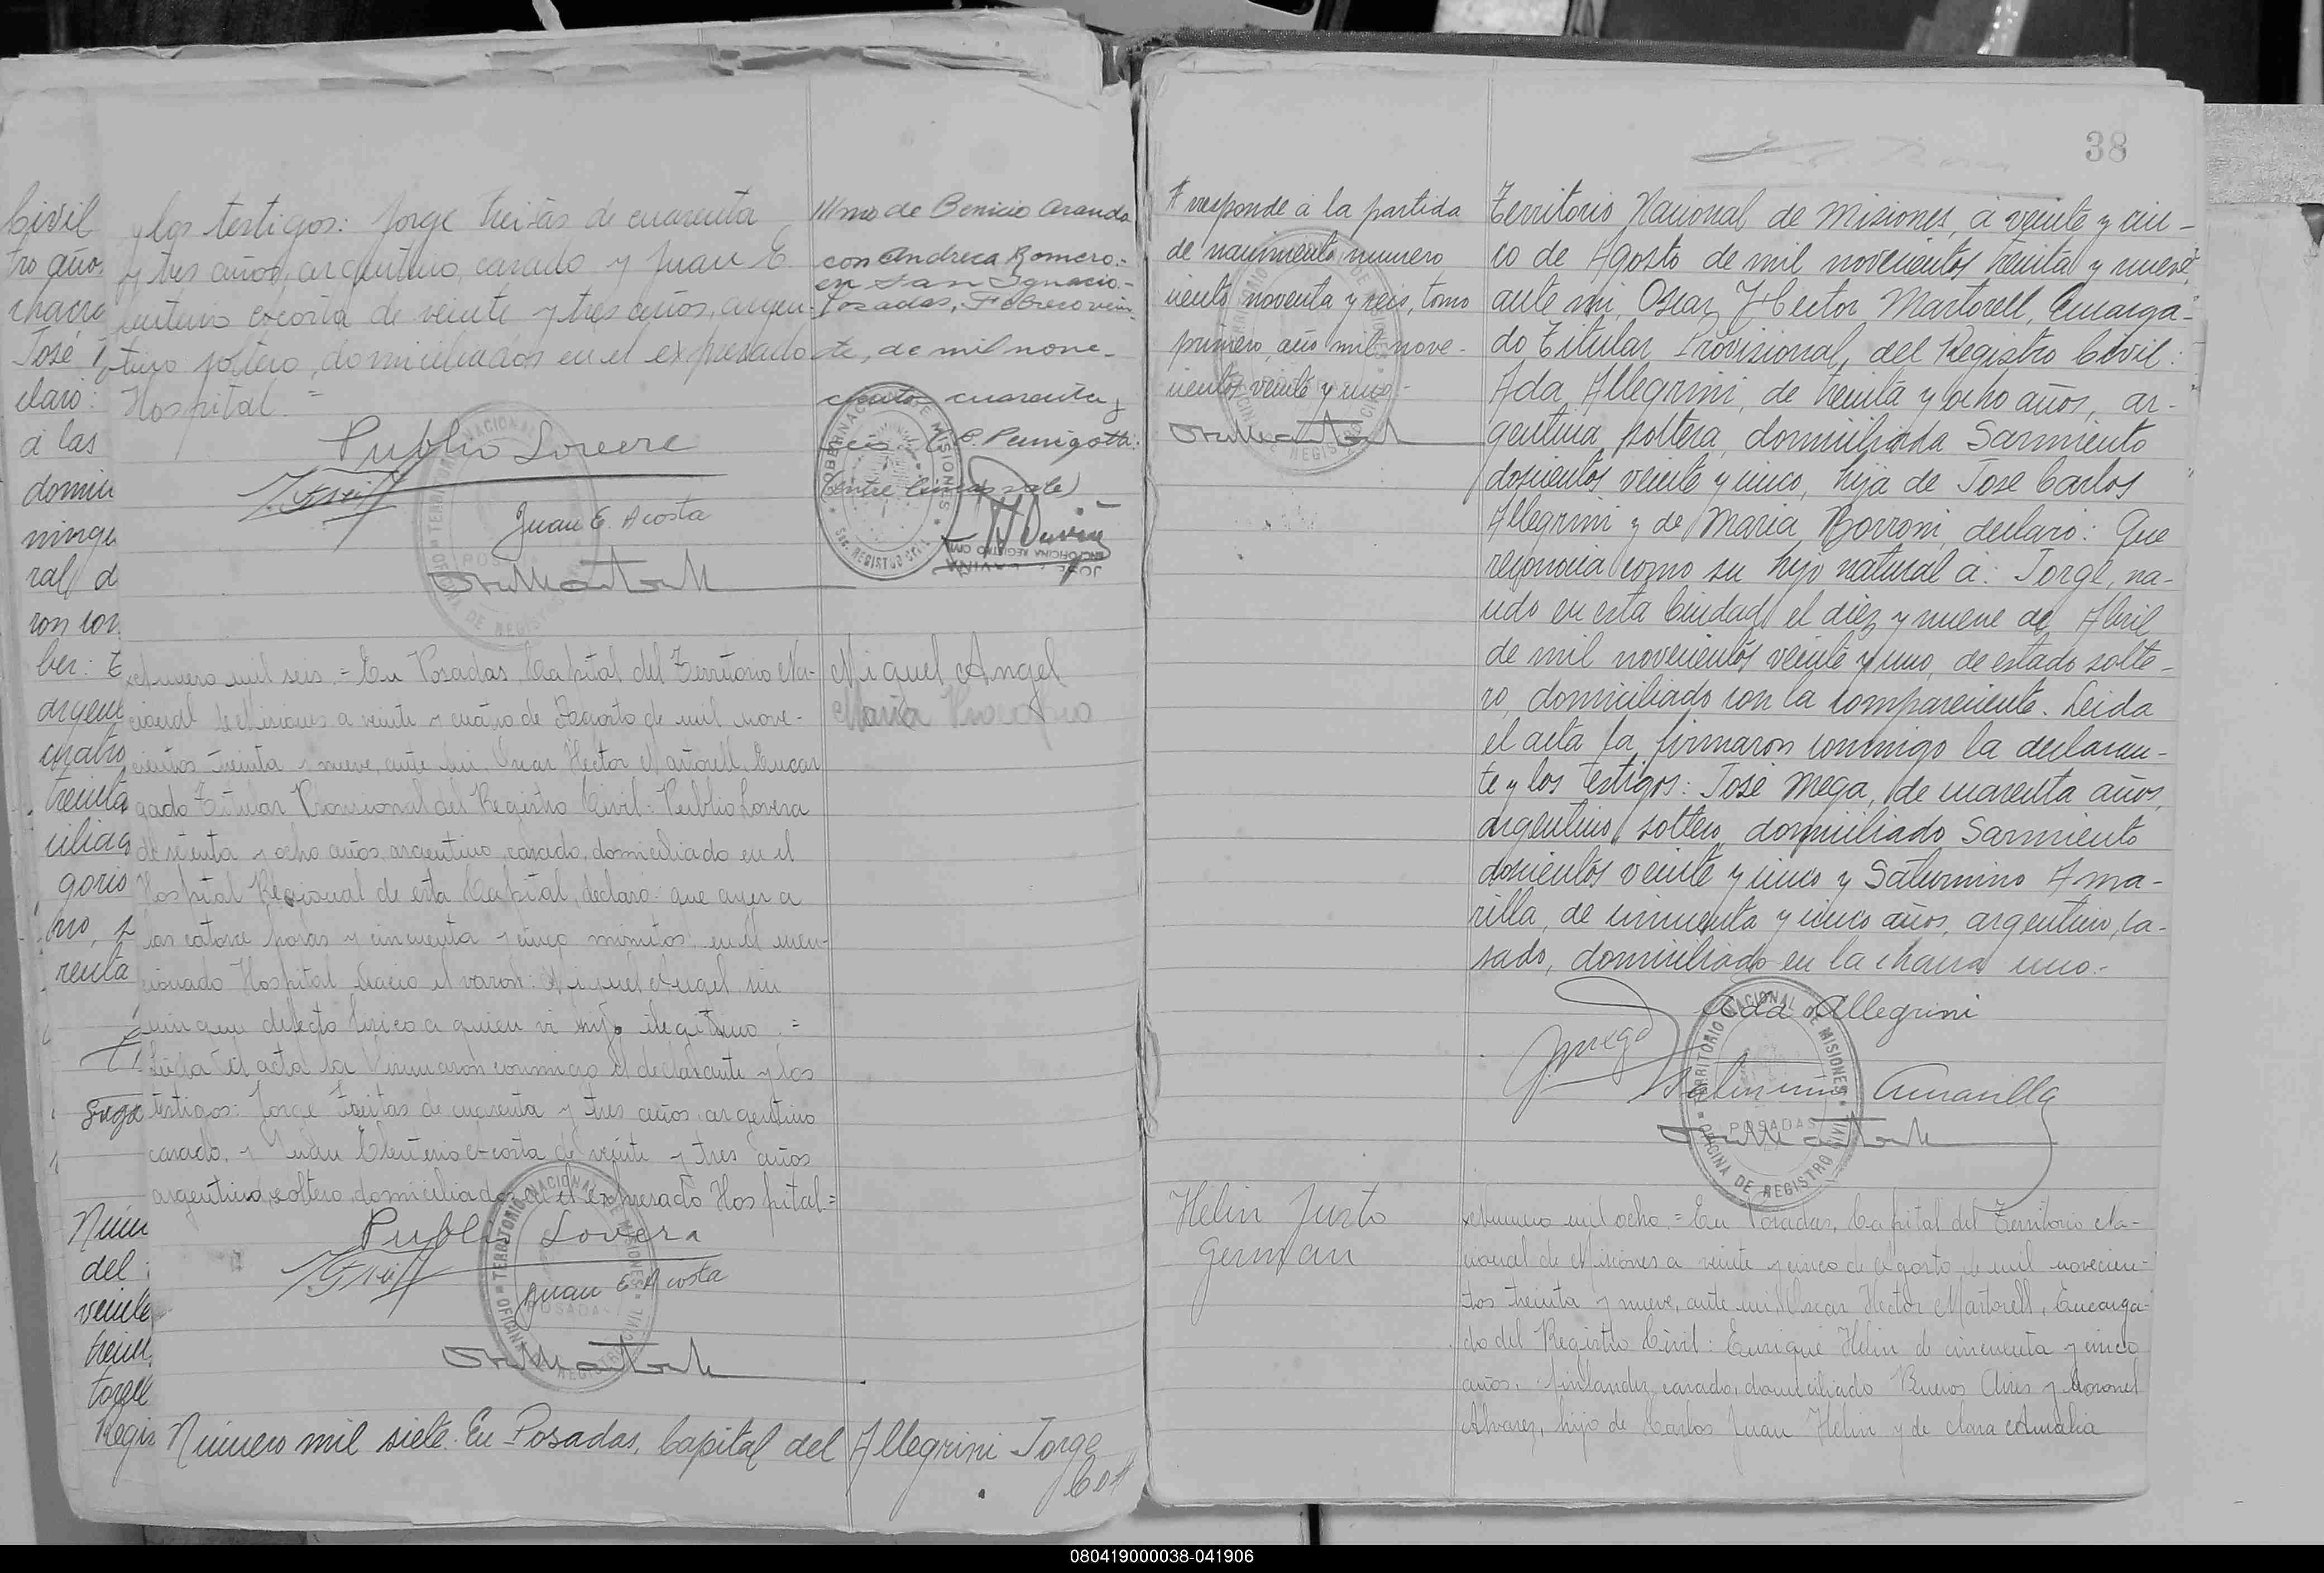 y los testigos: Jorge Freitas de cuarenta
y tres años, argentino, casado y Juan E
leuterio Acosta de veinte y tres años, argen-
tino soltero, domiciliados en el expresado
Hospital. =
Publio Lovera
Juan E. Acosta
con Andrea Romero.-
en San Ignacio.-
Posadas, Febrero vein-
te, de mil nove-
cientos cuarenta y
(entre lineas vale)
GOBERNACION DE MISIONES
SEC. REGISTRO CIVIL
Civil
tro años
chacra
José
claró:
a las
domici
ral d
ron con
ber:
argen
cuatro
treinta
renta
Núm
del
veinte
trein
torell
Regis
Número mil seis. = En Posadas, Capital del Territorio Na-
cional de Misiones a veinte y cuatro de Agosto de mil nove-
cientos treinta y nueve, ante mi, Oscar Hector Martorell, Encar
gado Titular Provisional del Registro Civil: Publio Lovera
de setenta y ocho años, argentino, casado, domiciliado en el
Hospital Regional de esta Capital, declaró: que ayer a
las catorce horas y cincuenta y cinco minutos, en el men-
cionado Hospital nació el varon: Miguel Angel sin
ningun defecto fisico a quien vi hijo ilegitimo. =
Leida el acta la firmaron conmigo el declarante y los
testigos: Jorge Freitas de cuarenta y tres años argentino
casado, y Juan Eleuterio Acosta de veinte y tres años
argentino, soltero, domiciliados en el expresado Hospital =
Miguel Angel
Publio Lovera
Juan E Acosta
TERRITORIO NACIONAL DE MISIONES
POSADAS
OFICINA DE REGISTRO CIVIL
Número mil siete. En Posadas, Capital del
Allegrini Jorge
Co#
38
# rresponde a la partida
de nacimiento numero
ciento noventa y seis, tomo
primero, año mil nove-
cientos veinte y uno.-
Territorio Nacional de Misiones, a veinte y cin-
co de Agosto de mil novecientos treinta y nueve,
ante mi, Oscar Hector Martorell, Encarga-
do Titular Provisional, del Registro Civil:
Ada Allegrini, de treinta y ocho años, ar-
gentina, soltera, domiciliada Sarmiento
doscientos veinte y cinco, hija de José Carlos
Allegrini y de Maria Borroni, declaró: Que
reconocia como su hijo natural á: Jorge, na-
cido en esta Ciudad, el diez y nueve de Abril
de mil novecientos veinte y uno, de estado solte-
ro, domiciliado con la compareciente. Leida
el acta la firmaron conmigo la declaran-
te y los testigos: José Mega, de cuarenta años,
argentino, soltero, domiciliado Sarmiento
doscientos veinte y cinco y Saturnino Ama-
rilla, de cincuenta y cinco años, argentino, ca-
sado, domiciliado en la chacra uno.-
Ada Allegrini
Saturnino Amarilla
TERRITORIO NACIONAL DE MISIONES
POSADAS
OFICINA DE REGISTRO CIVIL
Helin Justo
German
Número mil ocho. = En Posadas, Capital del Territorio Na-
cional de Misiones a veinte y cinco de Agosto de mil novecien-
tos treinta y nueve, ante mi, Oscar Hector Martorell, Encarga-
do del Registro Civil: Enrique Helin de cincuenta y cinco
años, finlandez, casado, domiciliado Buenos Aires y Coronel
Alvarez, hijo de Carlos Juan Helin y de Clara Amalia
080419000038-041906